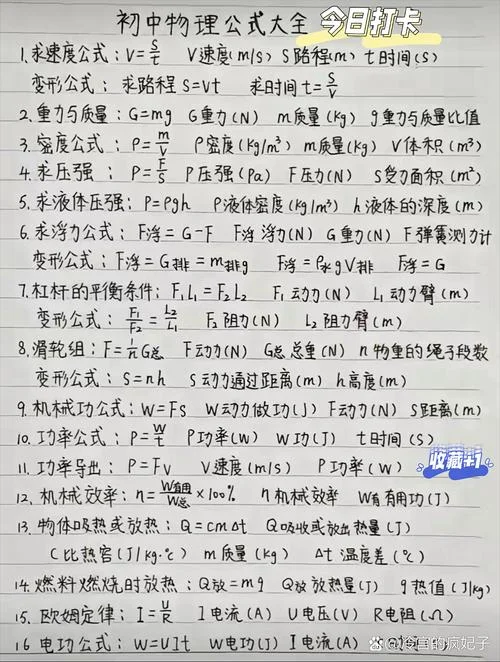 初中物理公式大全
今日打卡
1.求速度公式：V=S/t V速度(m/s) S路程(m) t时间(s)
变形公式：求路程S=Vt 求时间t=S/V
2.重力与质量：G=mg G重力(N) m质量(kg) g重力与质量比值
3.密度公式：ρ=m/V ρ密度(kg/m³) m质量(kg) V体积(m³)
4.求压强：P=F/S P压强(Pa) F压力(N) S受力面积(m²)
5.求液体压强：P=ρgh ρ液体密度(kg/m³) h液体的深度(m)
6.求浮力公式：F浮=G-F F浮浮力(N) G重力(N) F弹簧测力计
变形公式：F浮=G排=m排g F浮=ρ水gV排 F浮=G
7.杠杆的平衡条件：F₁L₁=F₂L₂ F₁动力(N) L₁动力臂(m)
变形公式：F₁/F₂=L₂/L₁ F₂阻力(N) L₂阻力臂(m)
8.滑轮组：F=1/n G总 F动力(N) G总总重(N) n物重的绳子段数
变形公式：S=nh S动力通过距离(m) h高度(m)
9.机械功公式：W=Fs W动力做功(J) F动力(N) S距离(m)
10.功率公式：P=W/t P功率(W) W功(J) t时间(S)
11.功率导出：P=Fv V速度(m/s) P功率(W)
收藏+1
12.机械效率：η=W有用/W总×100% η机械效率 W有有用功(J)
13.物体吸热或放热：Q=cmΔt Q吸收或放出热量(J)
C比热容(J/kg·℃) m质量(kg) Δt温度差(℃)
14.燃料燃烧时放热：Q放=mq Q放放热量(J) q热值(J/kg)
15.欧姆定律：I=U/R I电流(A) U电压(V) R电阻(Ω)
16电功公式：W=UIt W电功(J) I电流(A)